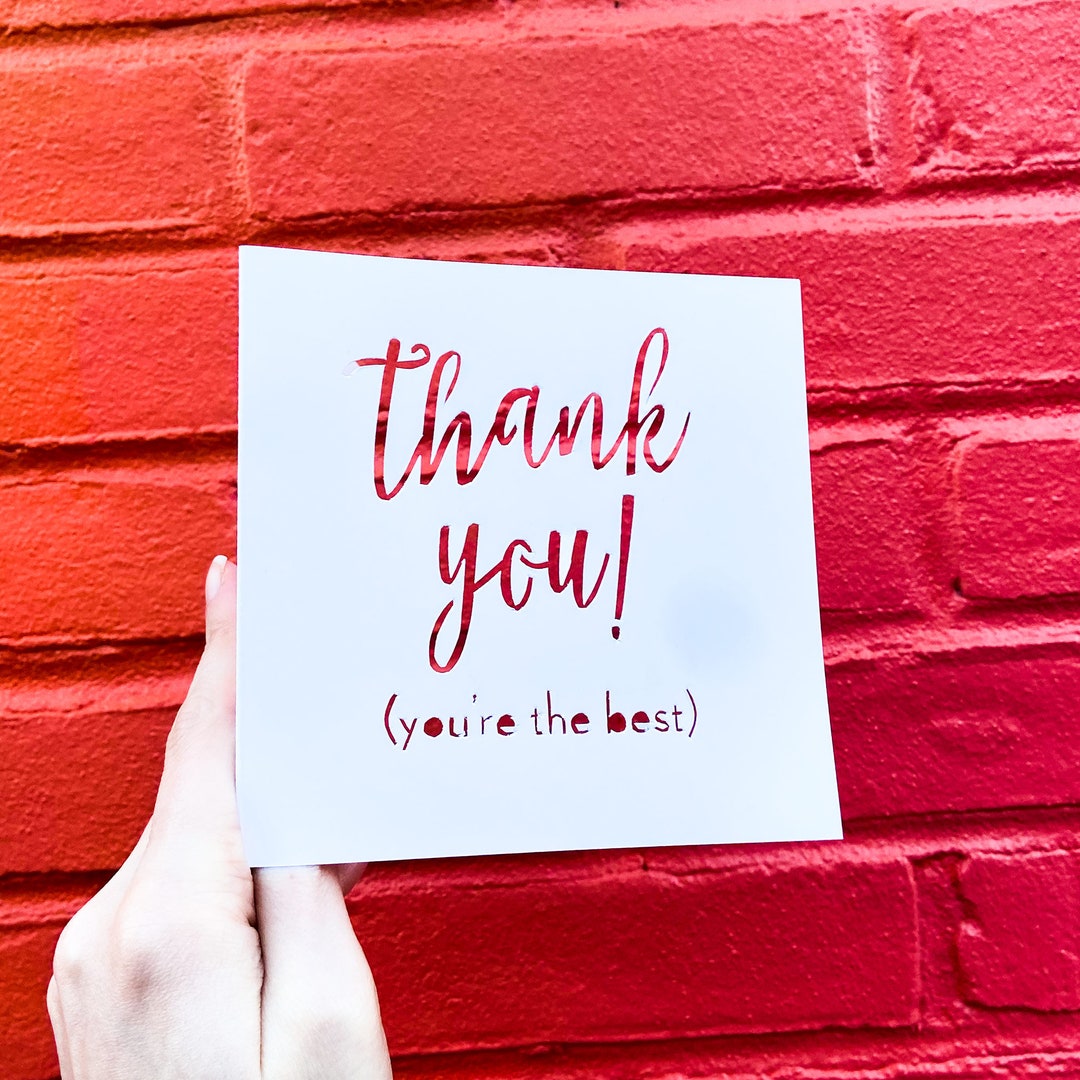 thank
you!
(you're the best)